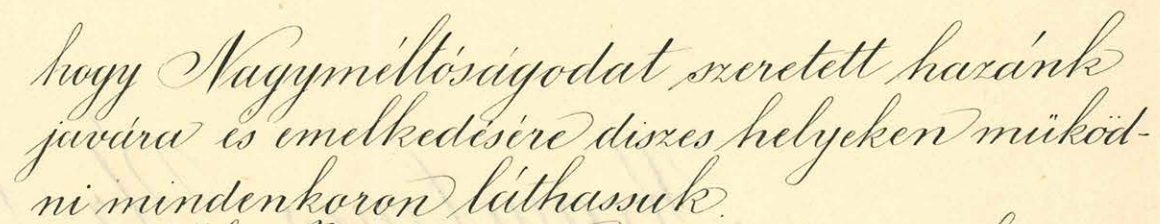 hogy Nagyméltóságodat szeretett hazánk
javára és emelkedésére diszes helyeken müköd-
ni mindenkoron láthassuk.